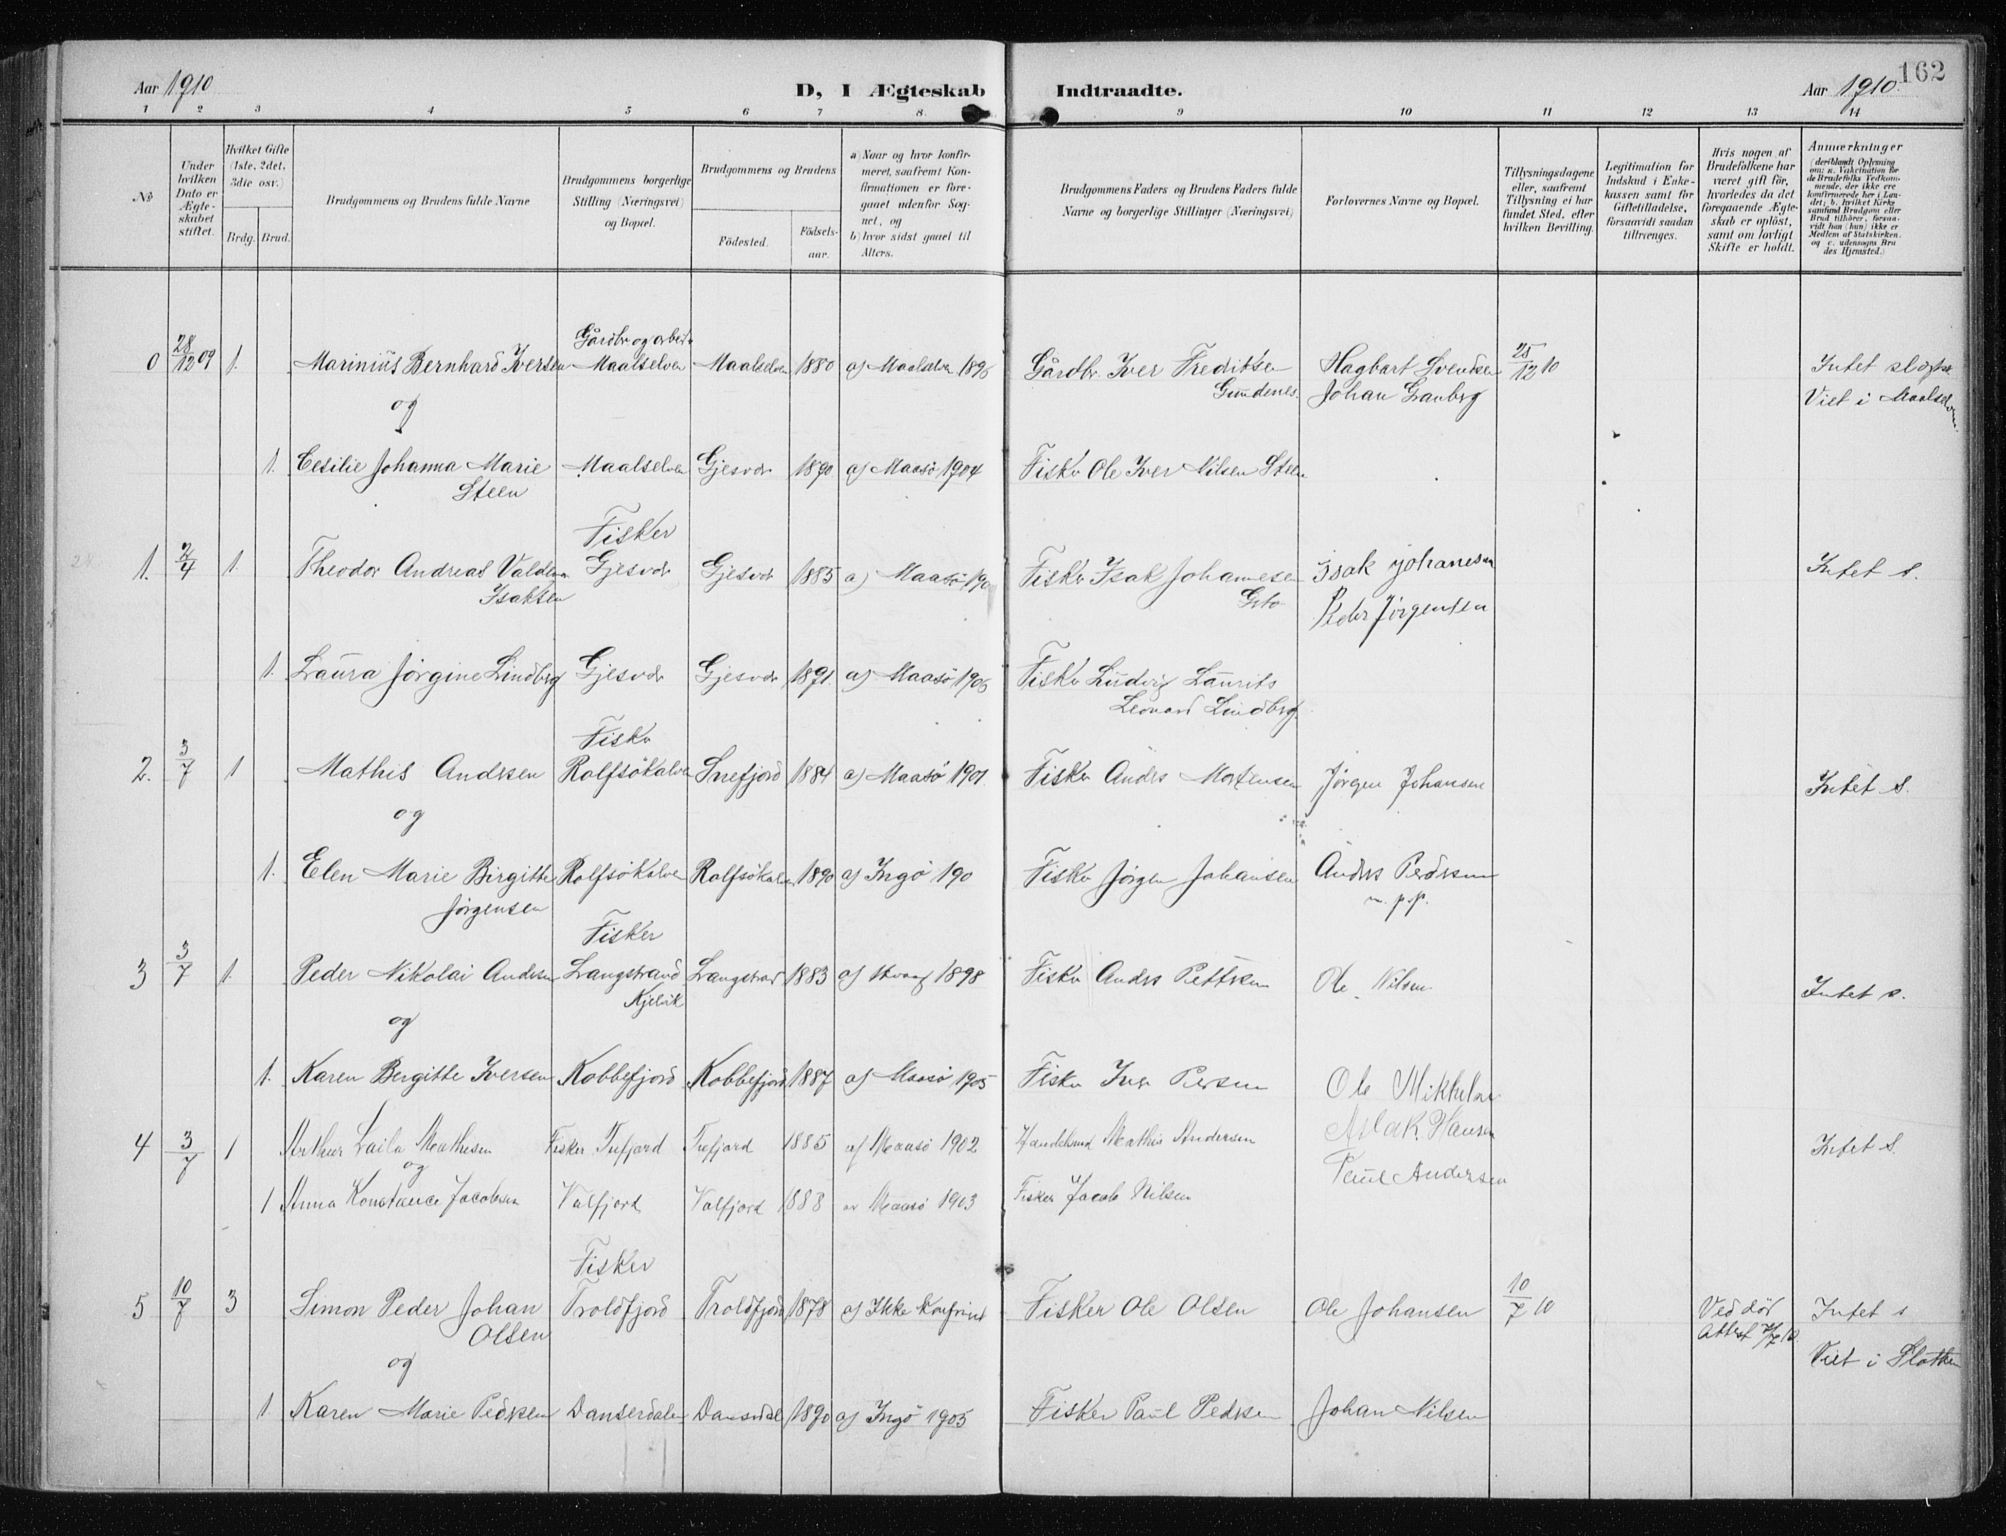 162
Aar 1910
D, I Ægteskab Indtraadte.
Aar 1910.
1 2 3 4 5 6 7 8. 9 10 11 12 13 14
No
Under hvilken Dato er Ægteskabet stiftet.
Hvilket Gifte (1ste, 2det, 3die osv.)
Brdg. Brud.
Brudgommens og Brudens fulde Navne
Brudgommens borgerlige Stilling (Næringsvei) og Bopæl.
Brudgommens og Brudens
Födested.
Födselsaar.
a) Naar og hvor konfirmeret, saafremt Konfirmationen er foregaaet udenfor Sognet, og
b) hvor sidst gaaet til Alters.
Brudgommens Faders og Brudens Faders fulde Navne og borgerlige Stillinger (Næringsvei)
Forlovernes Navne og Bopæl.
Tillysningsdagene eller, saafremt Tillysning ei har fundet Sted, efter hvilken Bevilling.
Legitimation for Indskud i Enkekassen samt for Giftetilladelse, forsaavidt saadan tiltrænges.
Hvis nogen af Brudefolkene har været gift för, hvorledes da det foregaaende Ægteskab er oplöst, samt om lovligt Skifte er holdt.
Anmærkninger (deriblandt Oplysning om: a. Vakcination for de Brudefolks Vedkommende, der ikke ere konfirmerede her i Landet; b. hvilket Kirkesamfund Brudgom eller Brud tilhörer, forsaavidt han (hun) ikke er Medlem af Statskirken. og c. udensogns Brudes Hjemsted.)
Gårdbr og arbeid
0 28/12 09 1. Marinius Bernhard Iversen Maalselven Maalselven 1880 a) Maalselven 1895 Gårdbr. Iver Fredriksen Hagbart Svendsen 25/12 10 Intet slægtsk
og Gundenes. Johan Granberg Viet i Maalselven
1. Cesilie Johanna Marie Maalselven Gjesvær 1890 a) Maasö 1904 Fisker Ole Iver Nilsen Steen
Steen
Fisker
1. 2/4 1. Theodor Andreas Valdemar Gjesvær Gjesvær 1885 a) Maasö 190 Fisker Isak Johannesen Isak Johanesen Intet s.
Isaksen Peder Jörgensen
1. Laura Jörgine Lindberg Gjesvær Gjesvær 1891. a) Maasö 1906 Fisker Ludvig Laurits
Leonard Lindberg
Fisker
2. 3/7 1 Mathis Andersen Rolfsökalven Snefjord 1884 a) Maasö 1901. Fisker Anders Mortensen Jörgen Johansen Intet s.
og
1. Elen Marie Birgitte Rolfsökalven Rolfsökalven 1890 a) Ingö 190 Fisker Jörgen Johansen Anders Pedersen
Jörgensen m. p. p.
Fisker
3 3/7 1. Peder Nikolai Andersen Langstrand Langstrand 1883 a) 1898 Fisker Anders Pettersen Ole Nilsen Intet s.
Kjelvik
og
1. Karen Bergitte Iversen Kobbefjord Kobbefjord 1887 a) Maasö 1905 Fisker Iver Persen Ole Mikkelsen
4 3/7 1 Arthur Laila Mathisen Fisker Tufjord Tufjord 1885 a) Maasö 1902 Handelsmd Mathis Andersen Aslak Hansen Intet s.
og
1 Anna Konstance Jacobsen Valfjord Valfjord 1888 a) Maasö 1903 Fisker Jacob Nilsen Paul Andersen
Fisker
5 10/7 3 Simon Peder Johan Troldfjord Troldfjord 1878 a) Ikke Konfirmt Fisker Ole Olsen Ole Johansen 10/7 10 Ved död Intet s
Olsen Attest 7/7 10 Viet i Slotten
og
1. Karen Marie Pedersen Danserdalen Danserdal 1890 a) Ingö 1905 Fisker Paul Pedersen Johan Nilsen